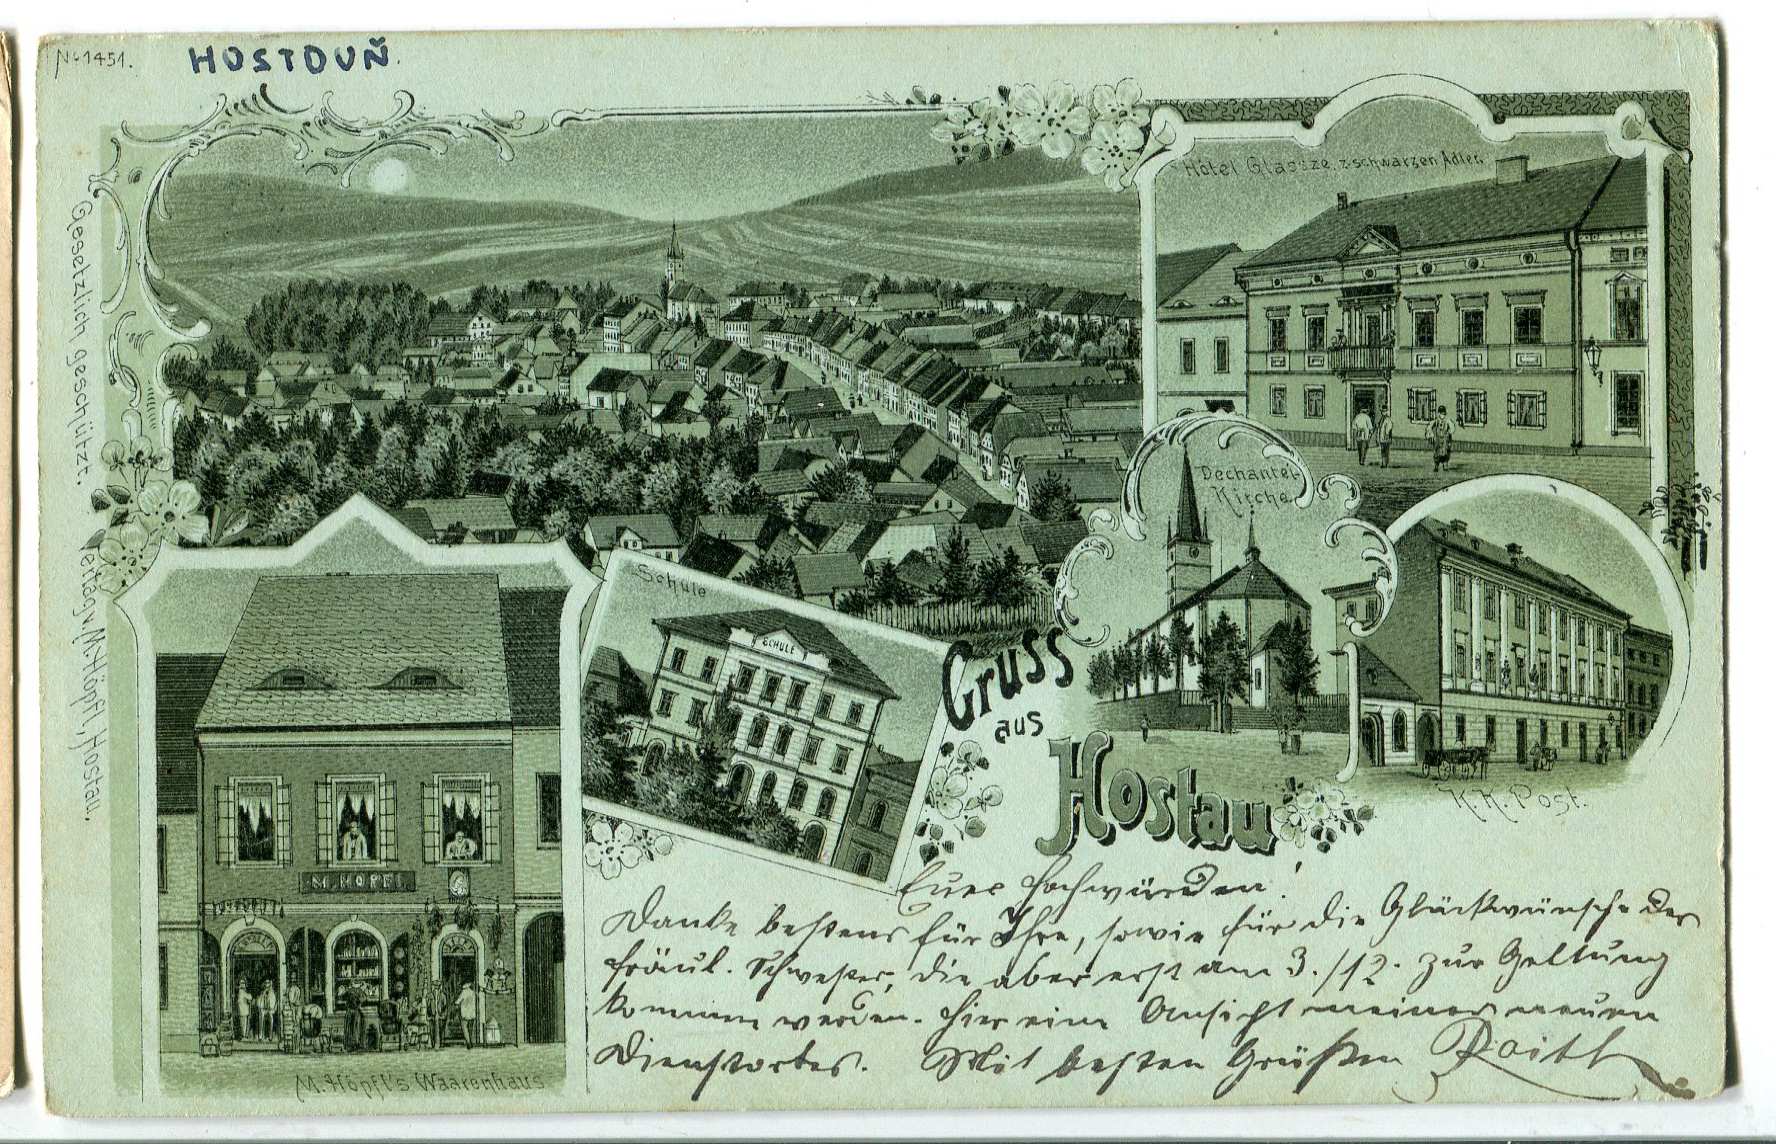 No 1451.
HOSTOUŇ.
Gesetzlich geschützt.
Verlag v. M. Höpfl, Hostau.
Hôtel Glassze, z. schwarzen Adler.
Dechantei-
Kirche.
Schule
SCHULE
Gruss
aus
Hostau
K. K. Post.
M. HÖPFL
M. Höpfl's Waarenhaus
Euer Hochwürden!
Danke bestens für Ihre, sowie für die Glückwünsche der
Fräul. Schwester, die aber erst am 3./12. zur Geltung
kommen werden. Hier eine Ansicht meines neuen
Dienstortes. Mit besten Grüßen